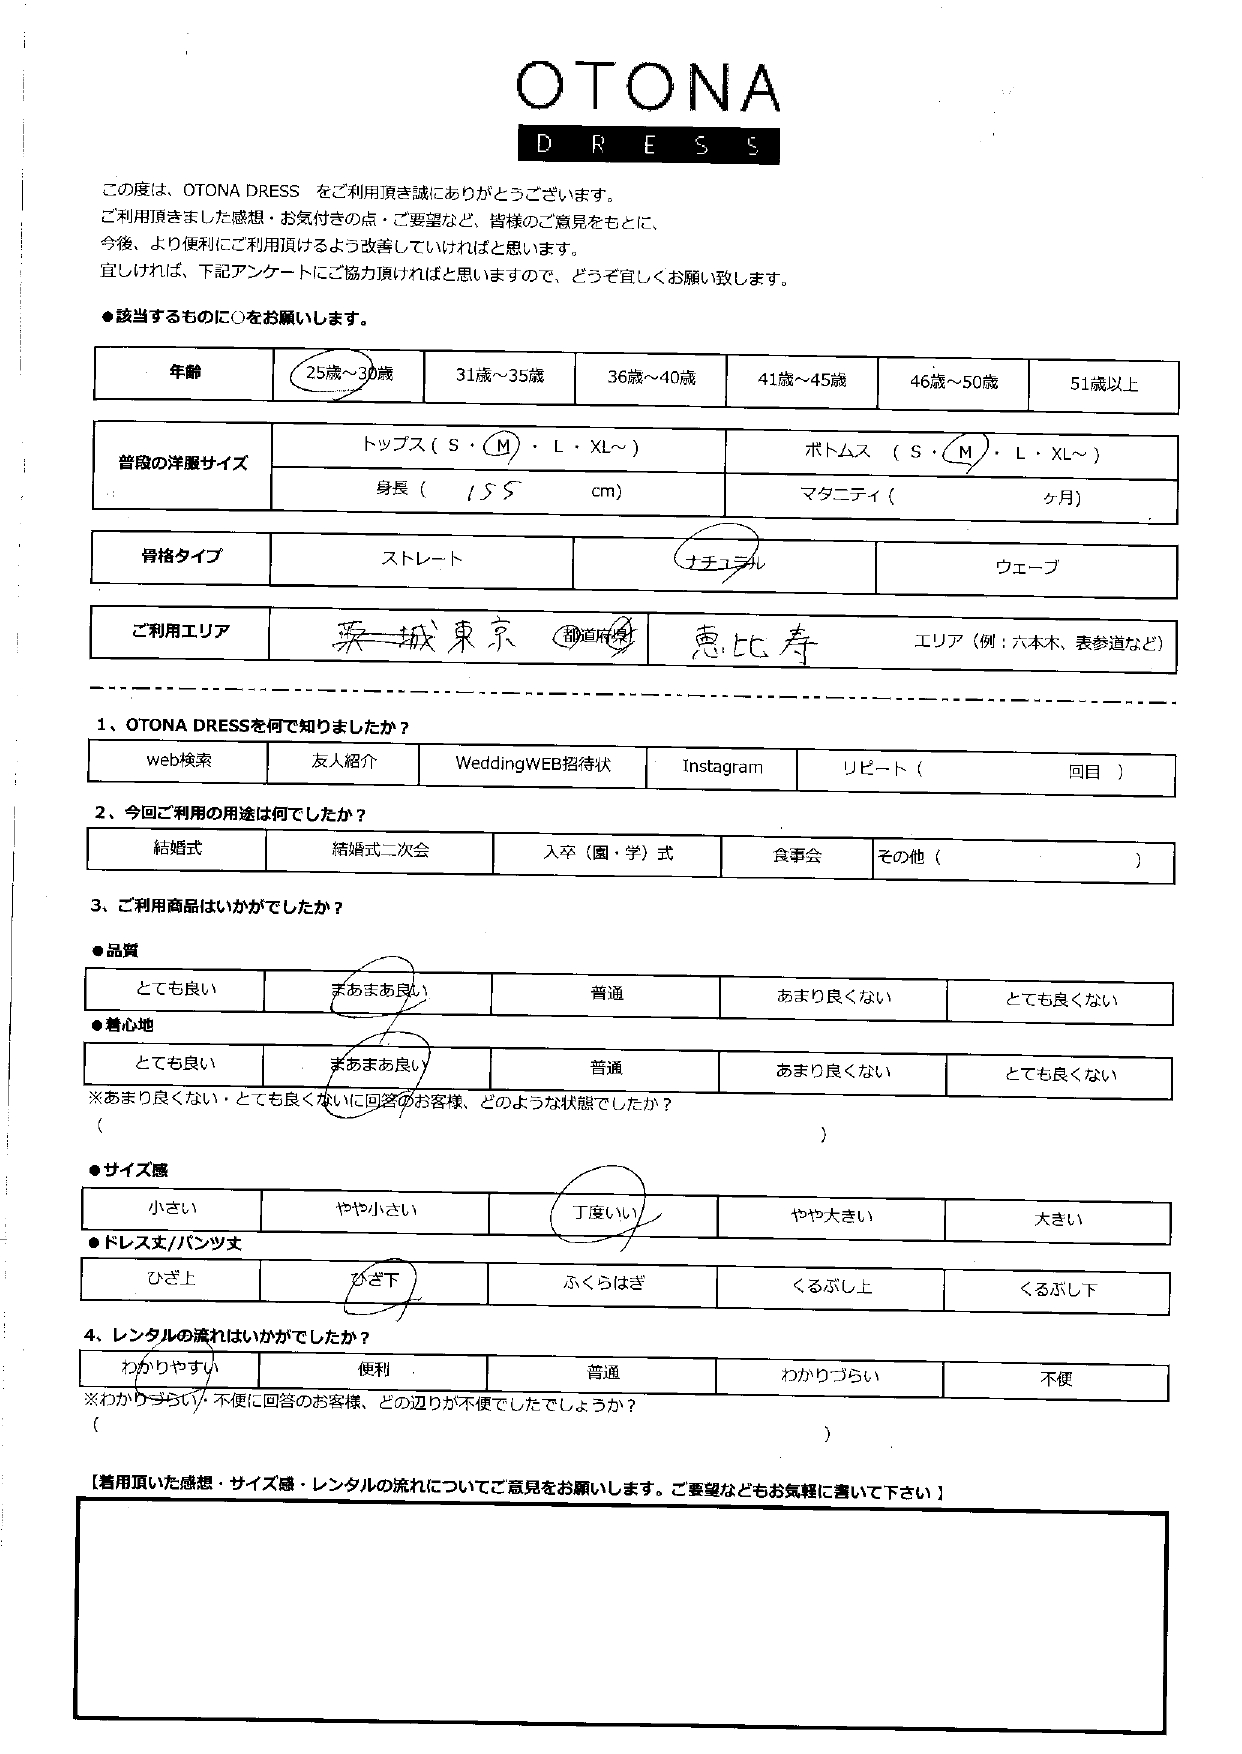 OTONA
DRESS
この度は、OTONA DRESS をご利用頂き誠にありがとうございます。
ご利用頂きました感想・お気付きの点・ご要望など、皆様のご意見をもとに、
今後、より便利にご利用頂けるよう改善していければと思います。
宜しければ、下記アンケートにご協力頂ければと思いますので、どうぞ宜しくお願い致します。
●該当するものに○をお願いします。
年齢 25歳～30歳 31歳～35歳 36歳～40歳 41歳～45歳 46歳～50歳 51歳以上
普段の洋服サイズ トップス ( S ・ M ・ L ・ XL～ ) ボトムス ( S ・ M ・ L ・ XL～ )
身長 ( 155 cm) マタニティ ( ヶ月)
骨格タイプ ストレート ナチュラル ウェーブ
ご利用エリア 東京 都道府県 恵比寿 エリア（例：六本木、表参道など）
1、OTONA DRESSを何で知りましたか？
web検索 友人紹介 WeddingWEB招待状 Instagram リピート ( 回目 )
2、今回ご利用の用途は何でしたか？
結婚式 結婚式二次会 入卒（園・学）式 食事会 その他 ( )
3、ご利用商品はいかがでしたか？
●品質
とても良い まあまあ良い 普通 あまり良くない とても良くない
●着心地
とても良い まあまあ良い 普通 あまり良くない とても良くない
※あまり良くない・とても良くないに回答のお客様、どのような状態でしたか？
( )
●サイズ感
小さい やや小さい 丁度いい やや大きい 大きい
●ドレス丈/パンツ丈
ひざ上 ひざ下 ふくらはぎ くるぶし上 くるぶし下
4、レンタルの流れはいかがでしたか？
わかりやすい 便利 普通 わかりづらい 不便
※わかりづらい・不便に回答のお客様、どの辺りが不便でしたでしょうか？
( )
【着用頂いた感想・サイズ感・レンタルの流れについてご意見をお願いします。ご要望などもお気軽に書いて下さい】